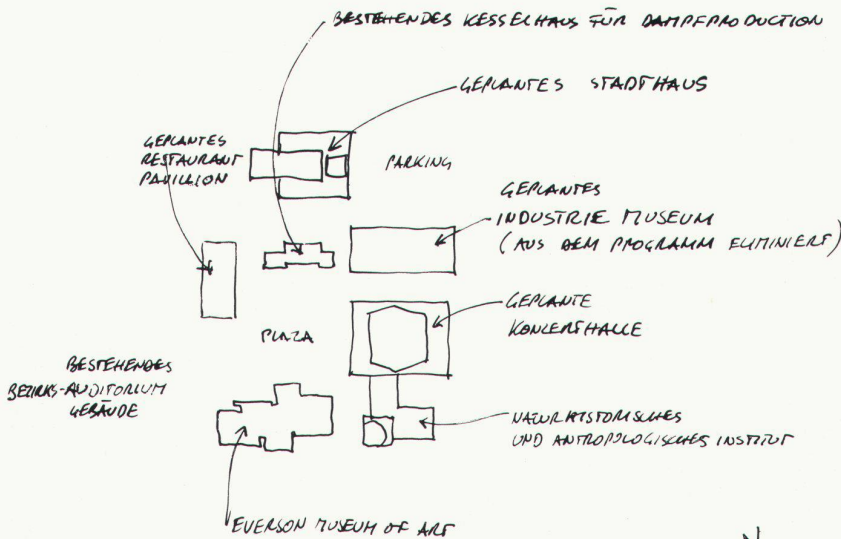 BESTEHENDES KESSELHAUS FÜR DAMPFPRODUCTION
GEPLANTES STADTHAUS
GEPLANTES
RESTAURANT
PAVILLION
PARKING
GEPLANTES
INDUSTRIE MUSEUM
(AUS DEM PROGRAMM ELIMINIERT)
GEPLANTE
KONZERTHALLE
PLAZA
BESTEHENDES
BEZIRKS-AUDITORIUM
GEBÄUDE
NATURHISTORISCHES
UND ANTROPOLOGISCHES INSTITUT
EVERSON MUSEUM OF ART
N